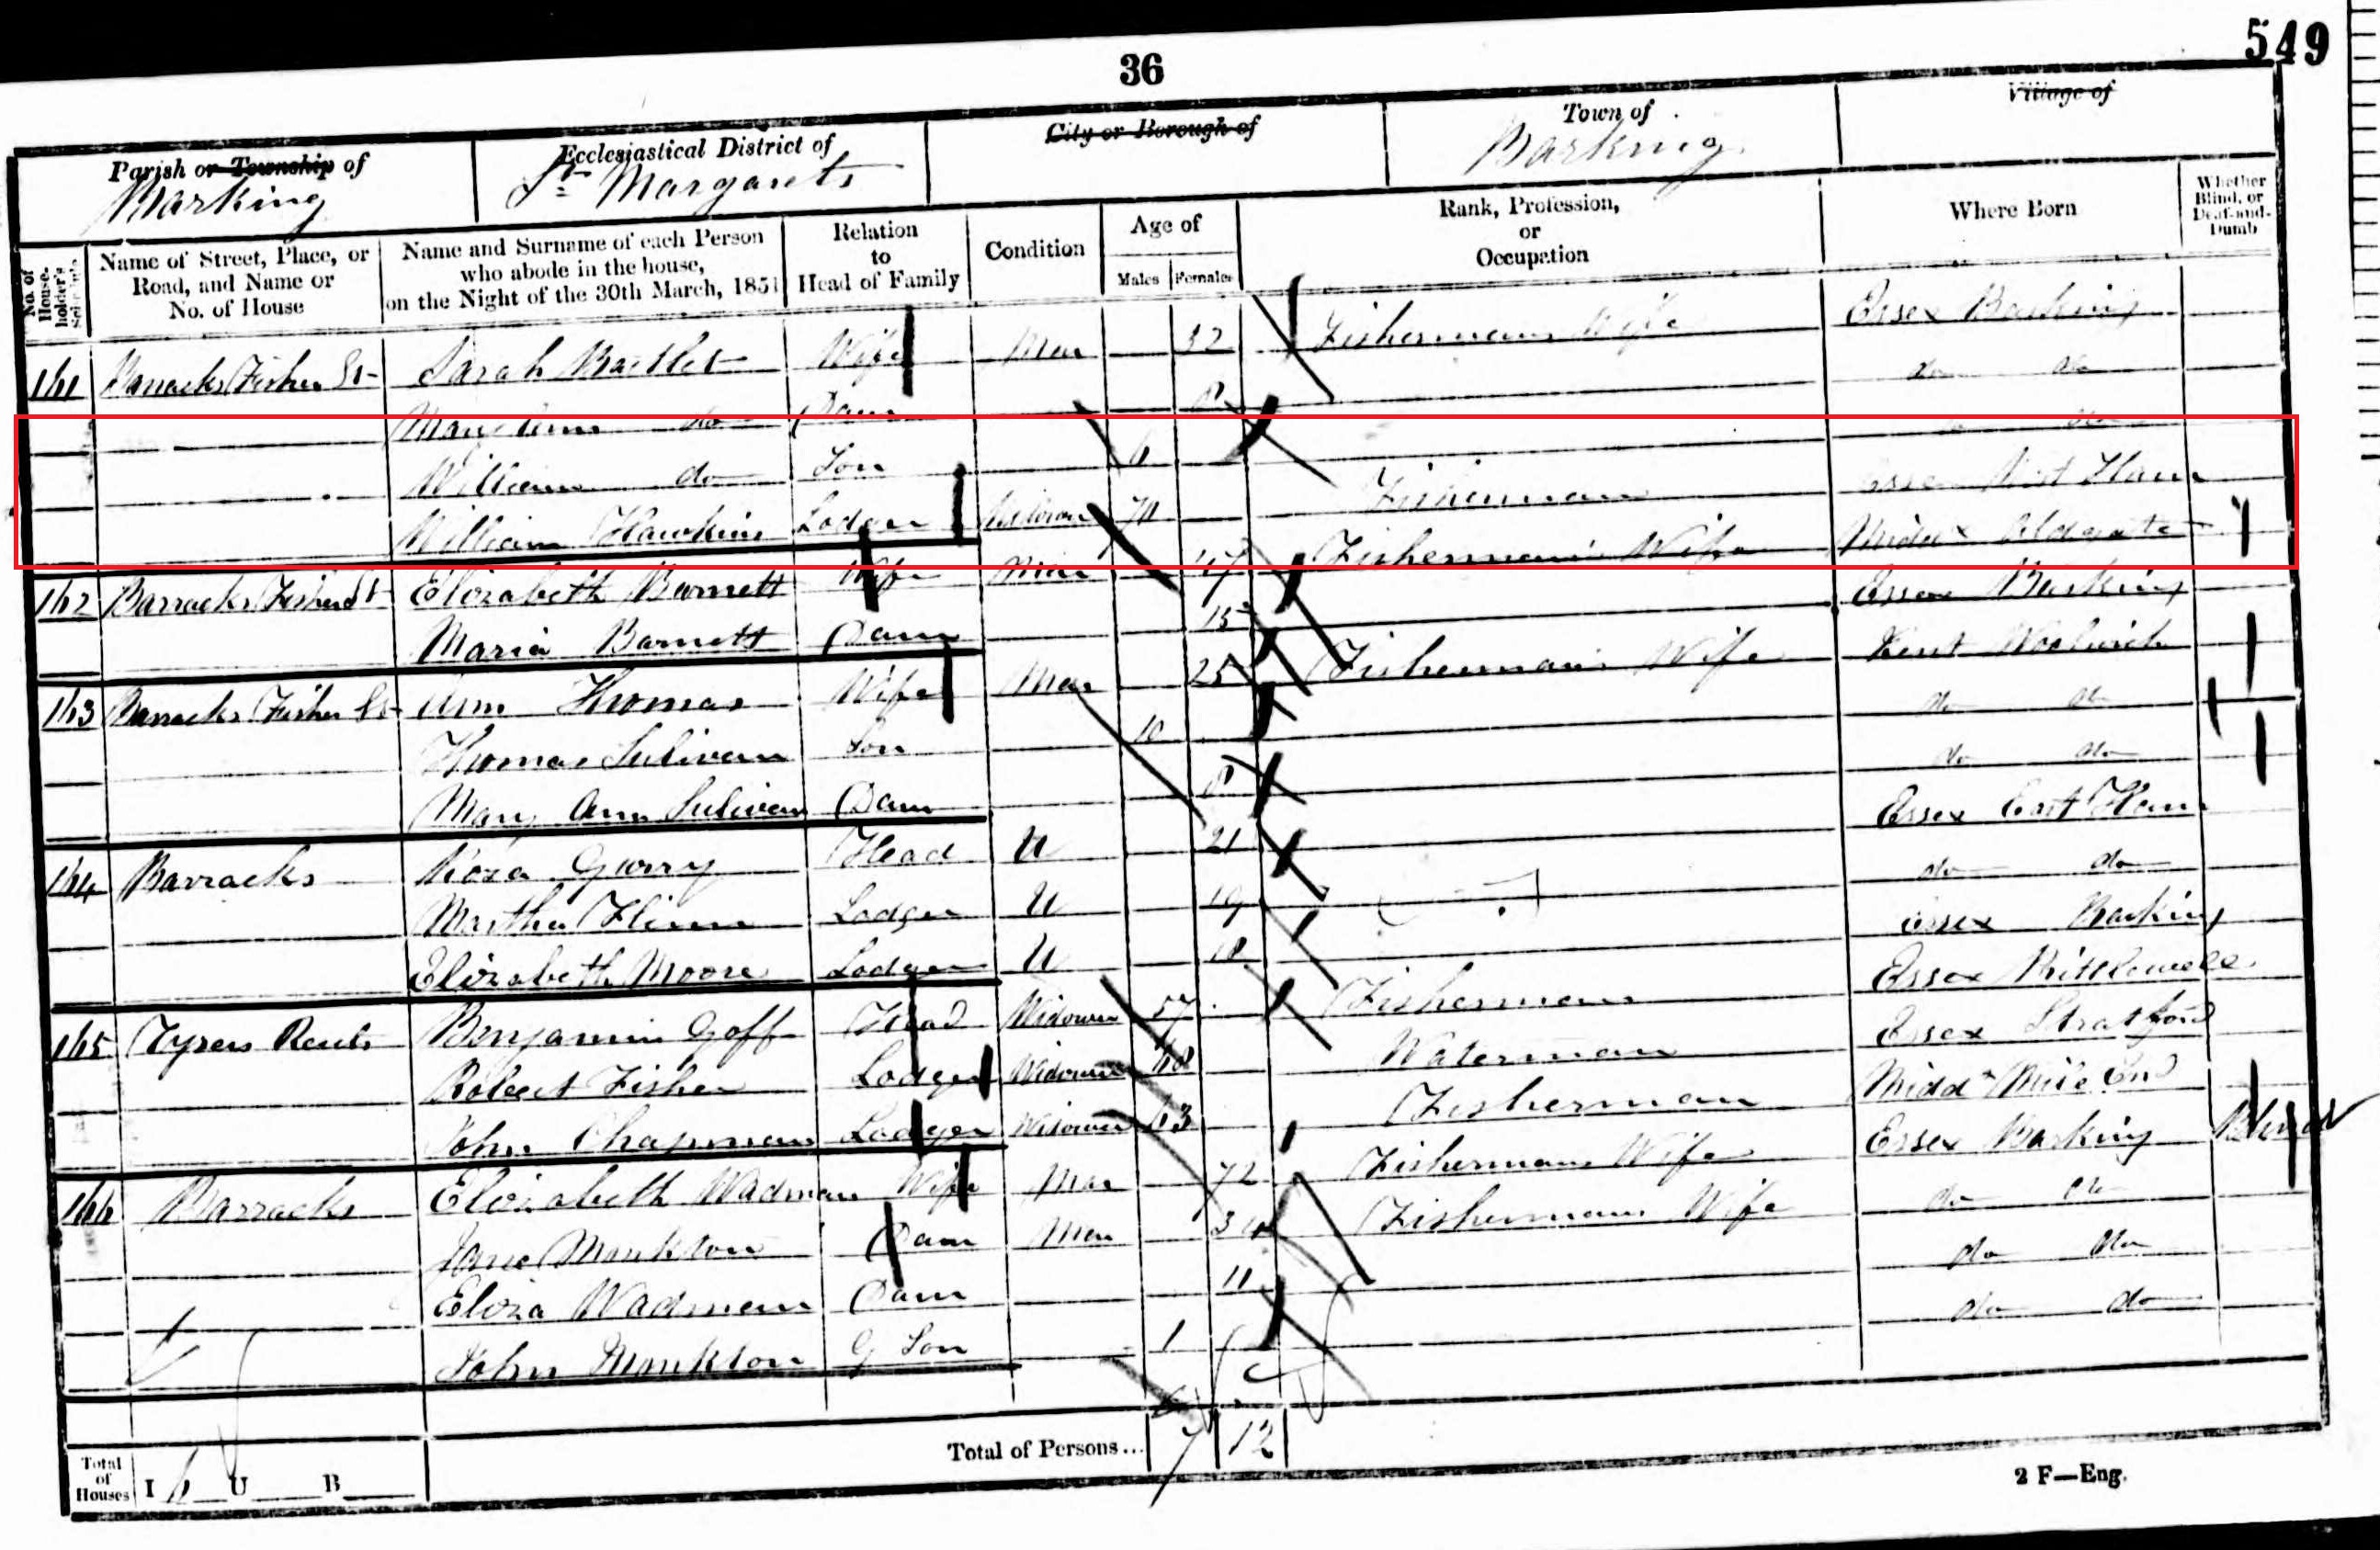 549
36
Parish or Township of Barking
Ecclesiastical District of St Margarets
City or Borough of
Town of Barking
Village of
No. of House-holder's Schedule
Name of Street, Place, or Road, and Name or No. of House
Name and Surname of each Person who abode in the house, on the Night of the 30th March, 1851
Relation to Head of Family
Condition
Age of
Males Females
Rank, Profession, or Occupation
Where Born
Whether Blind, or Deaf-and-Dumb
161 Barracks Fisher St Sarah Bartlet Wife Mar 32 Fishermans Wife Essex Barking
Mary Ann do Daur 8 do do
William do Son 6 do
William Hawkins Lodger 70 Fisherman Essex Ham
162 Barracks Fisher St Elizabeth Barnett Wife Mar 47 Fisherman's Wife Middx Aldgate
Maria Barnett Daur 15 Essex Barking
163 Barracks Fisher St Ann Thomas Wife Mar 25 Fisherman's Wife Kent Woolwich
Thomas Sulivan Son 10 do do
Mary Ann Sulivan Daur 8 do do
164 Barracks Roza Gurry Head U 21 Essex East Ham
Martha Flinn Lodger U 19 do do
Elizabeth Moore Lodger U 18 Essex Barking
165 Tysers Rents Benjamin Goff Head Widower 57 Fisherman Essex Prittlewell
Robert Fisher Lodger Widower 48 Waterman Essex Stratford
John Chapman Lodger Widower 63 Fisherman Midd Mile End
166 Barracks Elizabeth Wadman Wife Mar 72 Fishermans Wife Essex Barking Blind
Jane Monkton Daur Mar 34 Fishermans Wife do do
Eliza Wadman Daur 11 do do
John Monkton G Son 1 do do
Total of Houses I 6 U B
Total of Persons... 7 12
2 F—Eng.